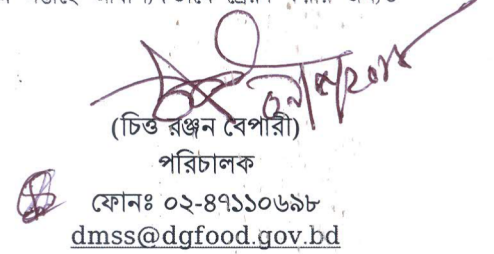 (চিত্ত রঞ্জন বেপারী)
পরিচালক
ফোনঃ ০২-৪৭১১০৬৯৮
dmss@dgfood.gov.bd